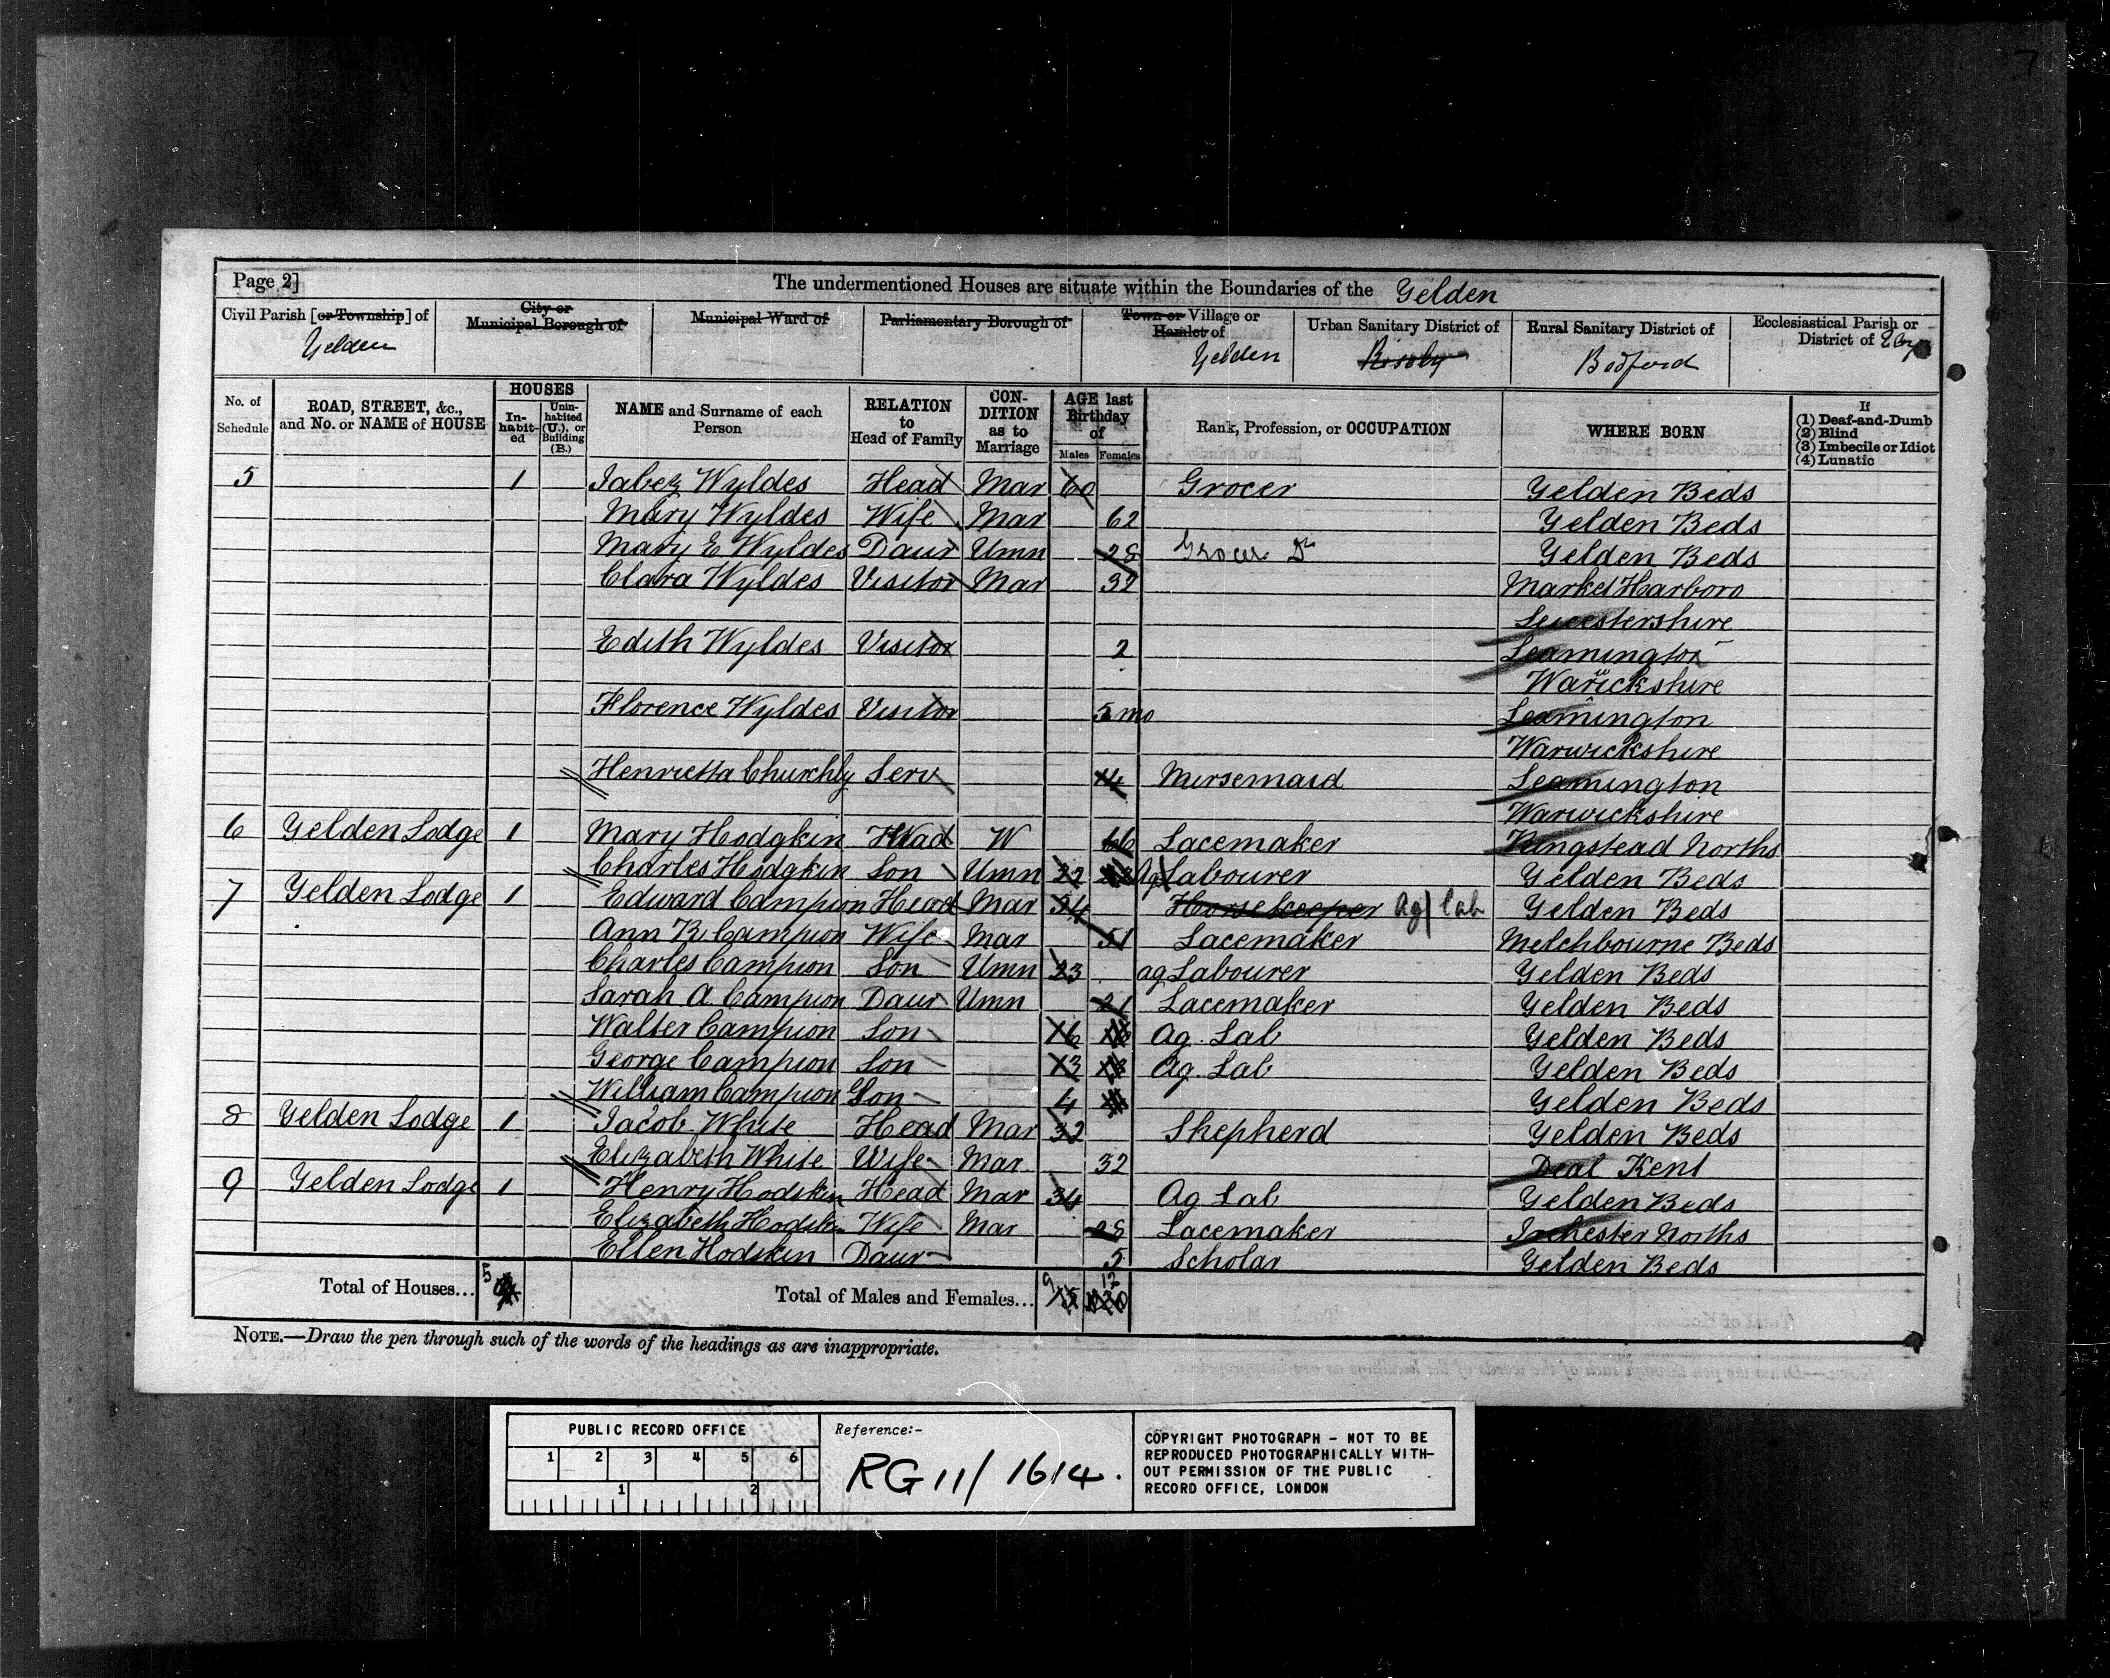 Page 2] The undermentioned Houses are situate within the Boundaries of the Yelden
Civil Parish [or Township] of Yelden
City or Municipal Borough of
Municipal Ward of
Parliamentary Borough of
Town or Village or Hamlet of Yelden
Urban Sanitary District of
Rural Sanitary District of Bedford
Ecclesiastical Parish or District of
No. of Schedule
ROAD, STREET, &c., and No. or NAME of HOUSE
HOUSES
In-habit-ed
Unin-habited (U.), or Building (B.)
NAME and Surname of each Person
RELATION to Head of Family
CON-DITION as to Marriage
AGE last Birthday of
Males Females
Rank, Profession, or OCCUPATION
WHERE BORN
If
(1) Deaf-and-Dumb
(2) Blind
(3) Imbecile or Idiot
(4) Lunatic
5 1 Jabez Wyldes Head Mar 60 Grocer Yelden Beds
Mary Wyldes Wife Mar 62 Yelden Beds
Mary E Wyldes Daur Umn 28 Grocer Dr Yelden Beds
Clara Wyldes Visitor Mar 32 Market Harboro
Leicestershire
Edith Wyldes Visitor 2 Leamington
Warickshire
Florence Wyldes Visitor 5 mo Leamington
Warwickshire
Henrietta Churchly Serv 14 Nursemaid Leamington
Warwickshire
6 Yelden Lodge 1 Mary Hodgkin Head W 66 Lacemaker Ringstead Norths
Charles Hodgkin Son Umn 22 Ag Labourer Yelden Beds
7 Yelden Lodge 1 Edward Campion Head Mar 54 Horsekeeper Ag Lab Yelden Beds
Ann B Campion Wife Mar 51 Lacemaker Melchbourne Beds
Charles Campion Son Umn 23 ag Labourer Yelden Beds
Sarah A Campion Daur Umn 21 Lacemaker Yelden Beds
Walter Campion Son 16 Ag. Lab Yelden Beds
George Campion Son 13 Ag. Lab Yelden Beds
William Campion GSon 4 Yelden Beds
8 Yelden Lodge 1 Jacob White Head Mar 32 Shepherd Yelden Beds
Elizabeth White Wife Mar 32 Deal Kent
9 Yelden Lodge 1 Henry Hodskin Head Mar 34 Ag Lab Yelden Beds
Elizabeth Hodskin Wife Mar 28 Lacemaker Irchester Norths
Ellen Hodskin Daur 5 Scholar Yelden Beds
Total of Houses... 5 Total of Males and Females... 9 12
NOTE.—Draw the pen through such of the words of the headings as are inappropriate.
PUBLIC RECORD OFFICE
1 2 3 4 5 6
1 2
Reference:-
RG 11/1614.
COPYRIGHT PHOTOGRAPH - NOT TO BE
REPRODUCED PHOTOGRAPHICALLY WITH-
OUT PERMISSION OF THE PUBLIC
RECORD OFFICE, LONDON